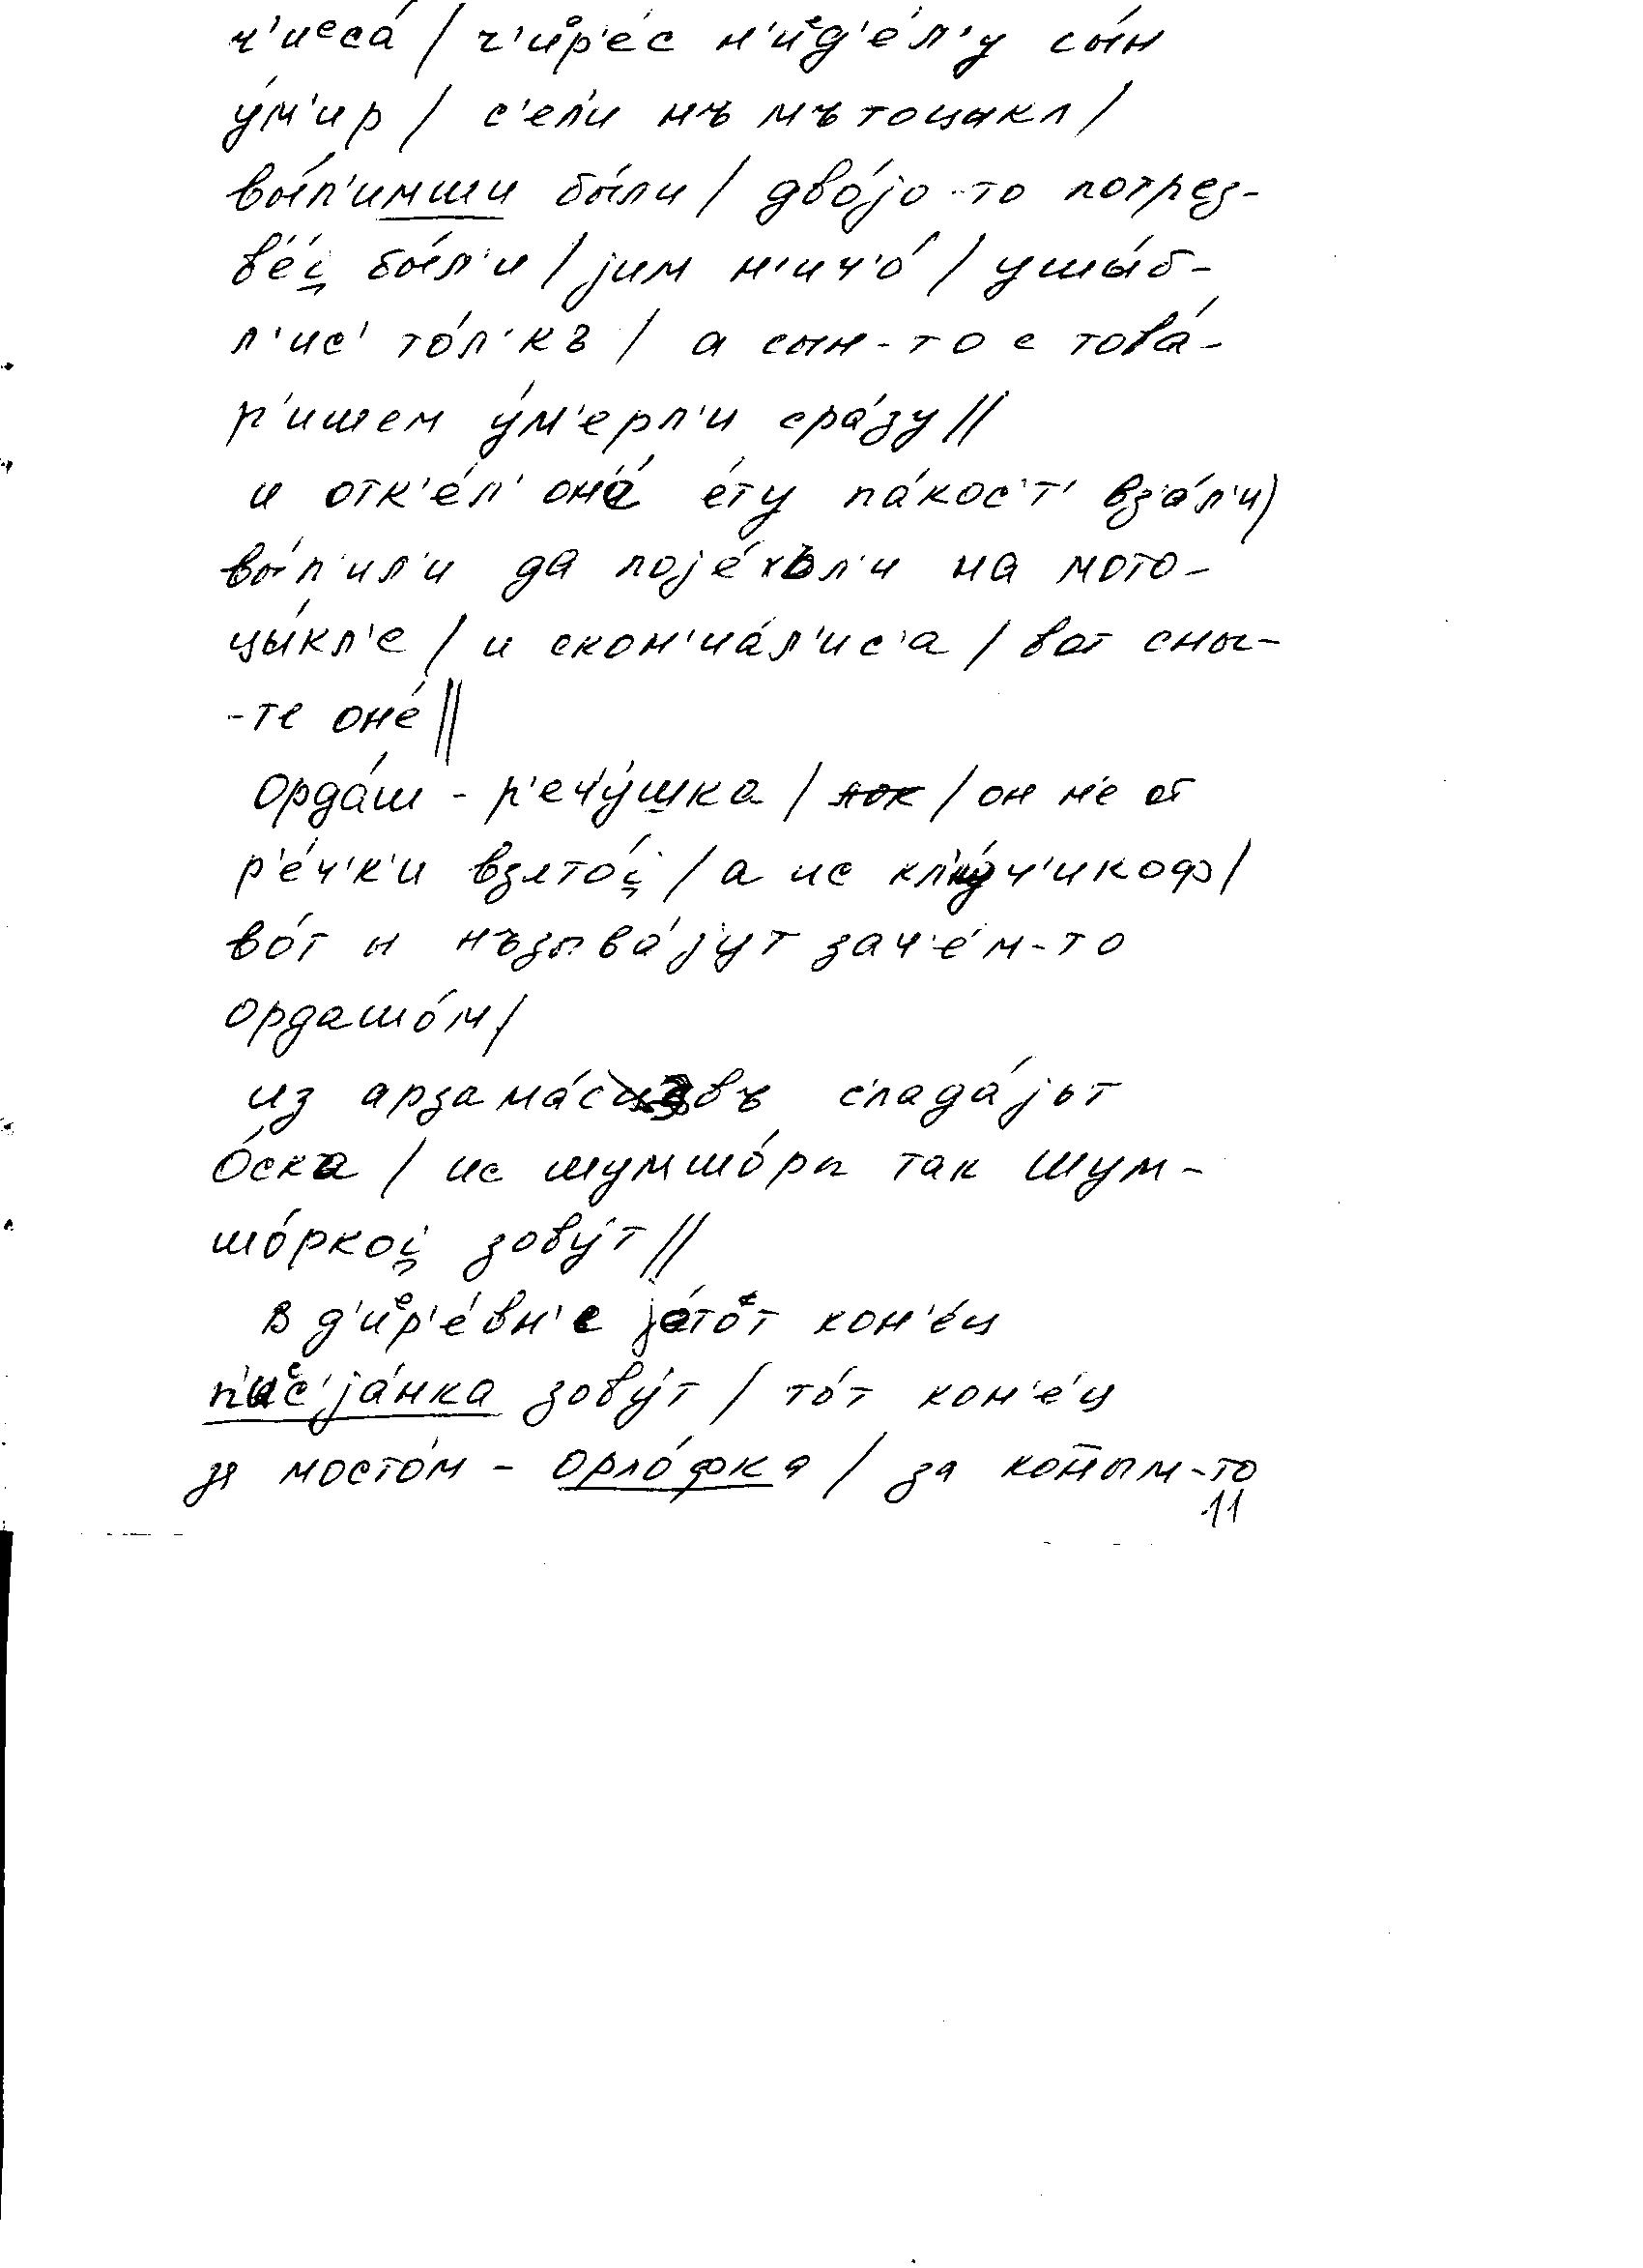 ч'иᵉса́ / ч'иᵉр'е́с н'иᵉд'е́л'у сы́н
у́м'ир / с'ел'и нъ мътоцыкл /
вы́п'имши бы́ли / дво́јо-то потрез-
ве́і̯ бы́л'и / јим н'ич'о́ / ушы́б-
л'ис' то́л'къ / а сын-то с това́-
р'ишем у́м'ерл'и сра́зу //
и отк'е́л' оне́ е́ту па́кос'т' вз'а́л'и /
вы́п'ил'и да поје́хъл'и на мото-
цы́кл'е / и скон'ча́л'ис'а / вот сны-
-те оне́ //
Орда́ш - р'еч'у́шка / ~~ток~~ / он н'е от
р'е́ч'к'и взято́і̯ / а ис кл'у́ч'икоф /
во́т и нъзыва́јут зач'е́м-то
Ордашо́м /
из арзама́совъ спада́јьт
О́ска / ис шумшо́ры так Шум-
шо́ркоі̯ зову́т //
В д'иᵉр'е́вн'е је́тот кон'е́ц
п'иᵉс'ја́нка зову́т / то́т кон'е́ц
за мосто́м - орло́фка / за
11